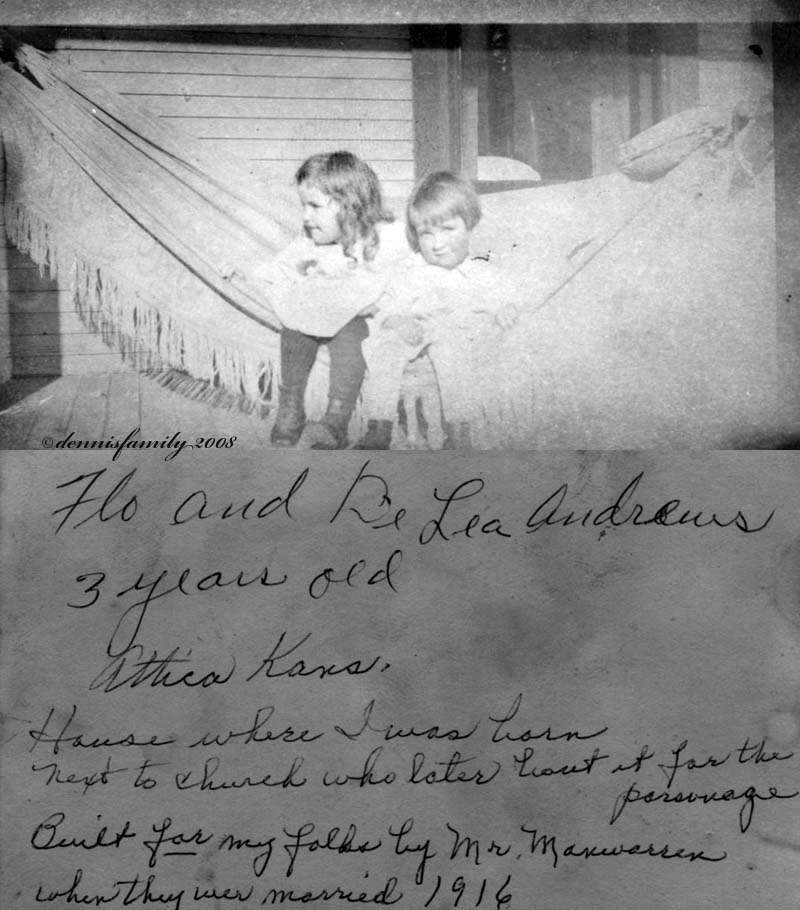 ©dennisfamily 2008
Flo and De Lea Andrews
3 years old
Attica Kans.
House where I was born
next to church who later bout it for the
parsonage
Built for my folks by Mr. Manwarren
when they wer married 1916